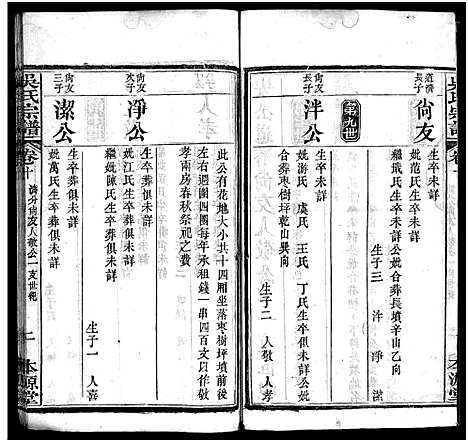 吳氏宗譜
卷十
本源堂
道濟
長子
尙友
生卒未詳
妣范氏生卒未詳
繼戴氏生卒未詳公妣合葬長墳辛山乙向
生子三 泮 淨 潔
第九世
尙友
長子
泮公
生卒未詳
妣游氏 虞氏 王氏 丁氏生卒俱未詳
合葬棗樹坪乾山巽向
生子二 人敬 人孝
此公有花地大小共十四厢坐落棗樹坪墳前後
左右週圍四團每年承租錢一串四百文以作敬
孝兩房春秋祭祀之費
尙友
次子
淨公
生卒葬俱未詳
妣江氏生卒葬俱未詳
繼妣陳氏生卒葬俱未詳
生子一 人喜
尙友
三子
潔公
生卒葬俱未詳
妣萬氏生卒葬俱未詳
吳氏宗譜
卷十
濟分尙友人敬公一支世紀
二
本源堂